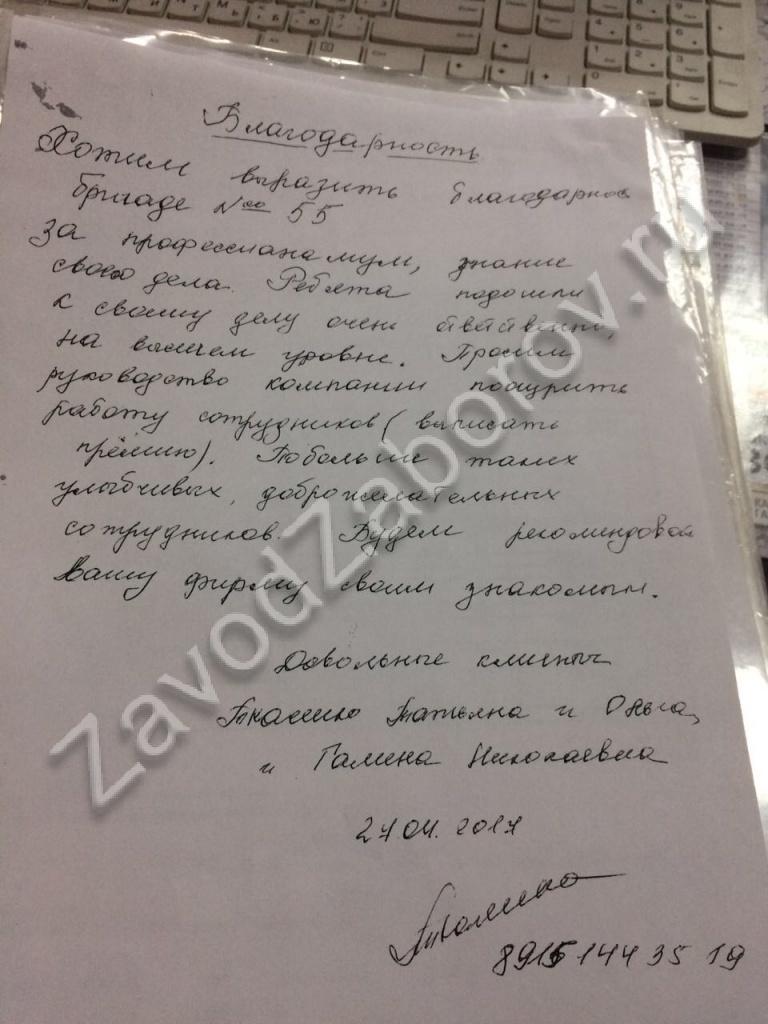 Благодарность
Хотим выразить благодарнос
бригаде № 55
За профессианамулм, знание
своего дела. Ребята подошли
к своему делу очень ответственно,
на высшем уровне. Просим
руководство компании поощрить
работу сотрудников (выписать
премию). Побольше таких
улыбчивых, доброжелательных
сотрудников. Будем рекомендоват
Вашу фирму своим знакомым.
Довольные клиенты
Татьяна и Ольга,
и Галина Николаевна
27.04.2017
8915 144 35 19
ZavodZaborov.ru